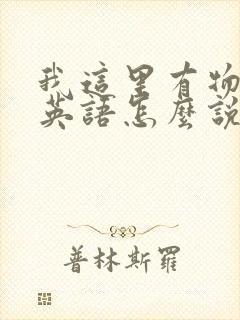 我這里有物
英語怎麼說
普林斯羅